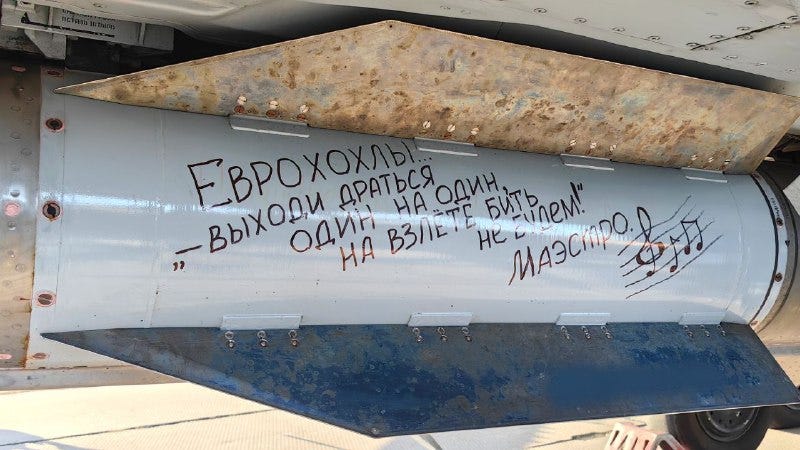 Еврохохлы...
„ – выходи драться
один на один,
на взлёте бить
не будем!"
Маэстро.